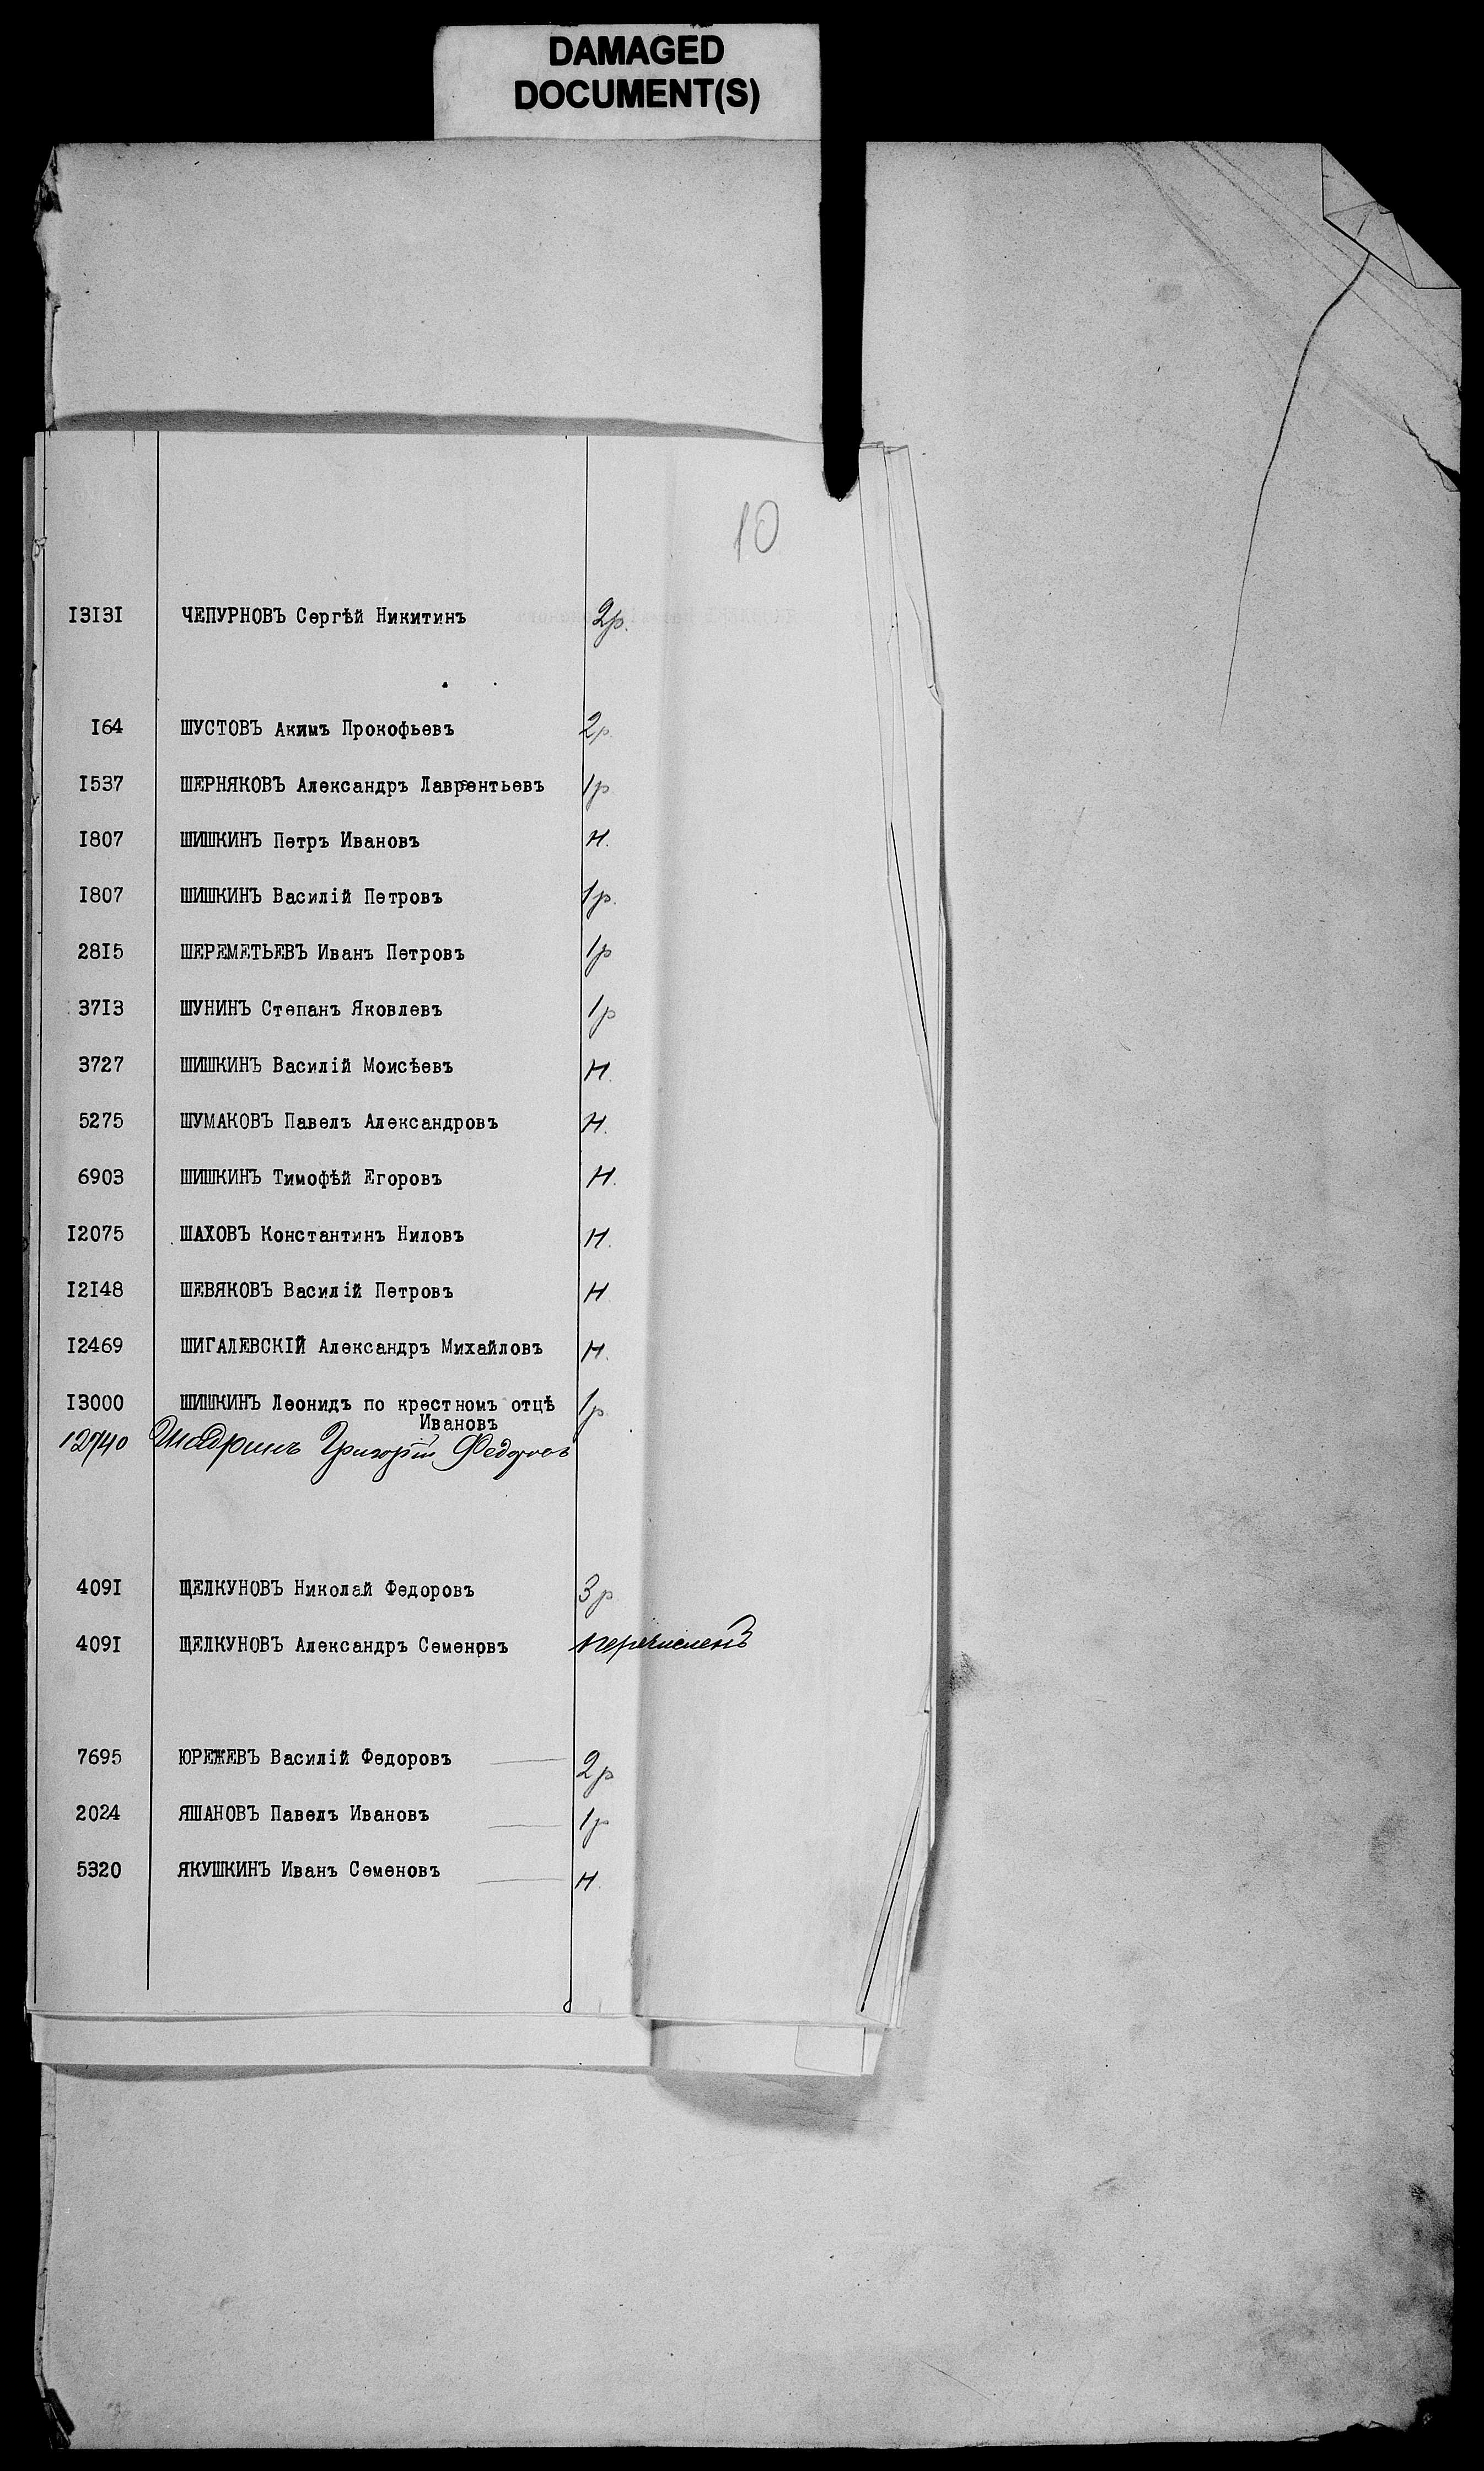 DAMAGED
DOCUMENT(S)
10
I3I3I ЧЕПУРНОВЪ Сергѣй Никитинъ 2р.
I64 ШУСТОВЪ Акимъ Прокофьевъ 2р.
I537 ШЕРНЯКОВЪ Александръ Лаврентьевъ 1р
I807 ШИШКИНЪ Петръ Ивановъ Н.
I807 ШИШКИНЪ Василій Петровъ 1р.
28I5 ШЕРЕМЕТЬЕВЪ Иванъ Петровъ 1р
37I3 ШУНИНЪ Степанъ Яковлевъ 1р
3727 ШИШКИНЪ Василій Моисѣевъ Н.
5275 ШУМАКОВЪ Павелъ Александровъ Н.
6903 ШИШКИНЪ Тимофѣй Егоровъ Н.
I2075 ШАХОВЪ Константинъ Ниловъ Н.
I2I48 ШЕВЯКОВЪ Василій Петровъ Н
I2469 ШИГАЛЕВСКІЙ Александръ Михайловъ Н.
I3000 ШИШКИНЪ Леонидъ по крестномъ отцѣ 1р.
Ивановъ
12940 Шадринъ Григорій Федоровъ
409I ЩЕЛКУНОВЪ Николай Федоровъ 3р
409I ЩЕЛКУНОВЪ Александръ Семеновъ перечисленъ
7695 ЮРЕЖЕВЪ Василій Федоровъ 2р
2024 ЯШАНОВЪ Павелъ Ивановъ 1р
5320 ЯКУШКИНЪ Иванъ Семеновъ Н